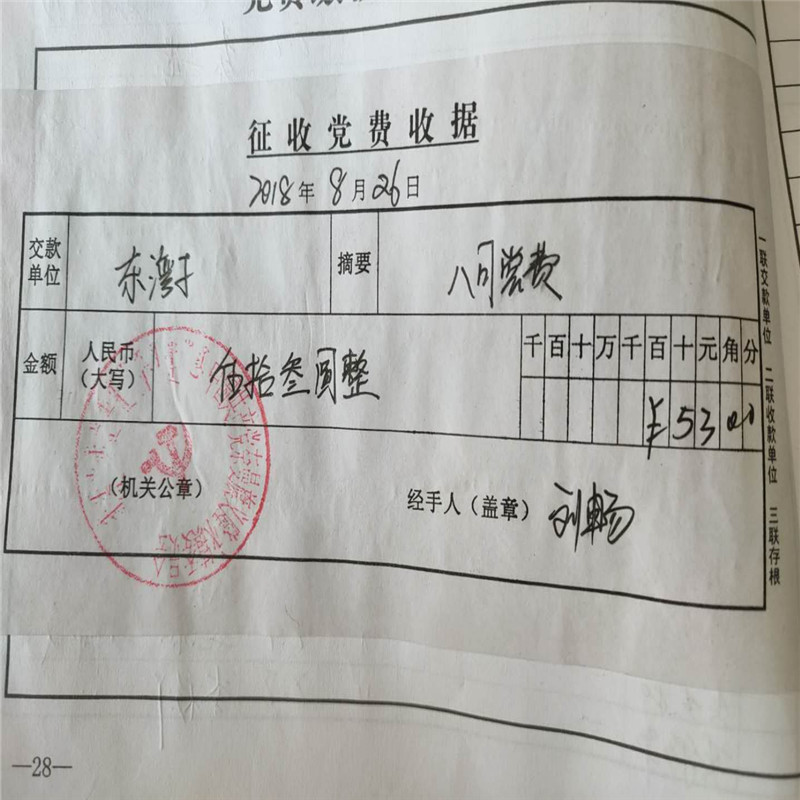 征收党费收据
2018年8月26日
交款单位 东湾子 摘要 八月党费
金额 人民币（大写） 伍拾叁圆整 千百十万千百十元角分
¥5300
（机关公章） 经手人（盖章） 刘畅
一联交款单位 二联收款单位 三联存根
—28—